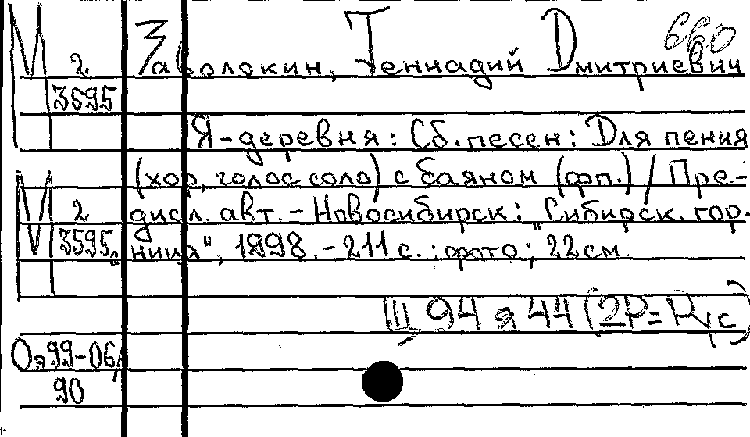 660
М 2 Заволокин, Геннадий Дмитриевич
3695
Я-деревня: Сб. песен: Для пения
(хор, голос соло) с баяном (фп.) / Пре-
М 2 дисл. авт. - Новосибирск: „Сибирск. гор-
3595 ница", 1998. - 211 с.: фото; 22 см.
Щ 94 я 44 (2Р=Рус)
Оя99-06/
90